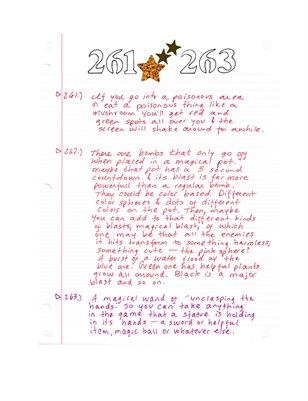 261 263
261.) If you go into a poisonous area
or eat a poisonous thing like a
mushroom you'll get red and
green spots all over you & the
screen will shake around for awhile.
262.) There are bombs that only go off
when placed in a magical pot.
Maybe that pot has a 5 second
countdown & its blast is far more
powerfull than a regular bomb.
They could be color based. Different
color spheres & dots of different
colors on the pot. Then, maybe
you can add to that different kinds
of blasts, magical blast, of which
one may be that all the enemies
it hits transform to something harmless,
something cute – the pink sphere?
A burst of a water flood by the
blue one. Green one has helpful plants
grow all around. Black is a major
blast and so on.
263.) A magical wand of "unclasping the
hands." So you can take anything
in the game that a statue is holding
in its hands – a sword or helpful
item, magic ball or whatever else.